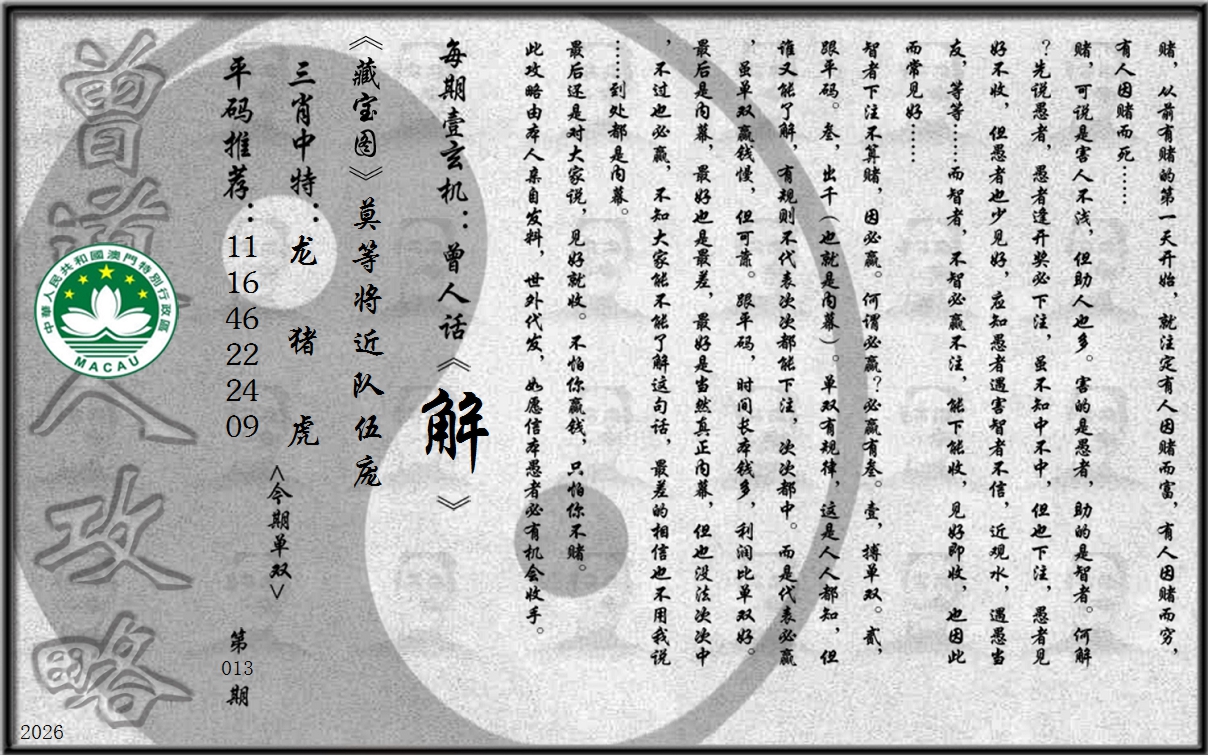 赌，从前有赌的第一天开始，就注定有人因赌而富，有人因赌而穷，
有人因赌而死……
赌，可说是害人不浅，但助人也多。害的是愚者，助的是智者。何解
？先说愚者，愚者逢开奖必下注，虽不知中不中，但也下注，愚者见
好不收，但愚者也少见好，应知愚者遇害智者不信，近观水，遇愚当
友，等等……而智者，不智必赢不注，能下能收，见好即收，也因此
而常见好……
智者下注不算赌，因必赢。何谓必赢？必赢有叁。壹，搏单双。贰，
跟平码。叁，出千（也就是内幕）。单双有规律，这是人人都知，但
谁又能了解，有规则不代表次次都能下注，次次都中。而是代表必赢
，虽单双赢钱慢，但可靠。跟平码，时间长本钱多，利润比单双好。
最后是内幕，最好也是最差，最好是当然真正内幕，但也没法次次中
，不过也必赢，不知大家能不能了解这句话，最差的相信也不用我说
……到处都是内幕。
最后还是对大家说，见好就收。不怕你赢钱，只怕你不赌。
此攻略由本人亲自发料，世外代发，如愿信本愚者必有机会收手。
每期壹玄机：曾人话《解》
《藏宝图》莫等将近队伍庞
三肖中特：龙 猪 虎
平码推荐：11 16 46 22 24 09
<今期单双>
第013期
曾道人攻略
中華人民共和國澳門特別行政區
MACAU
2026